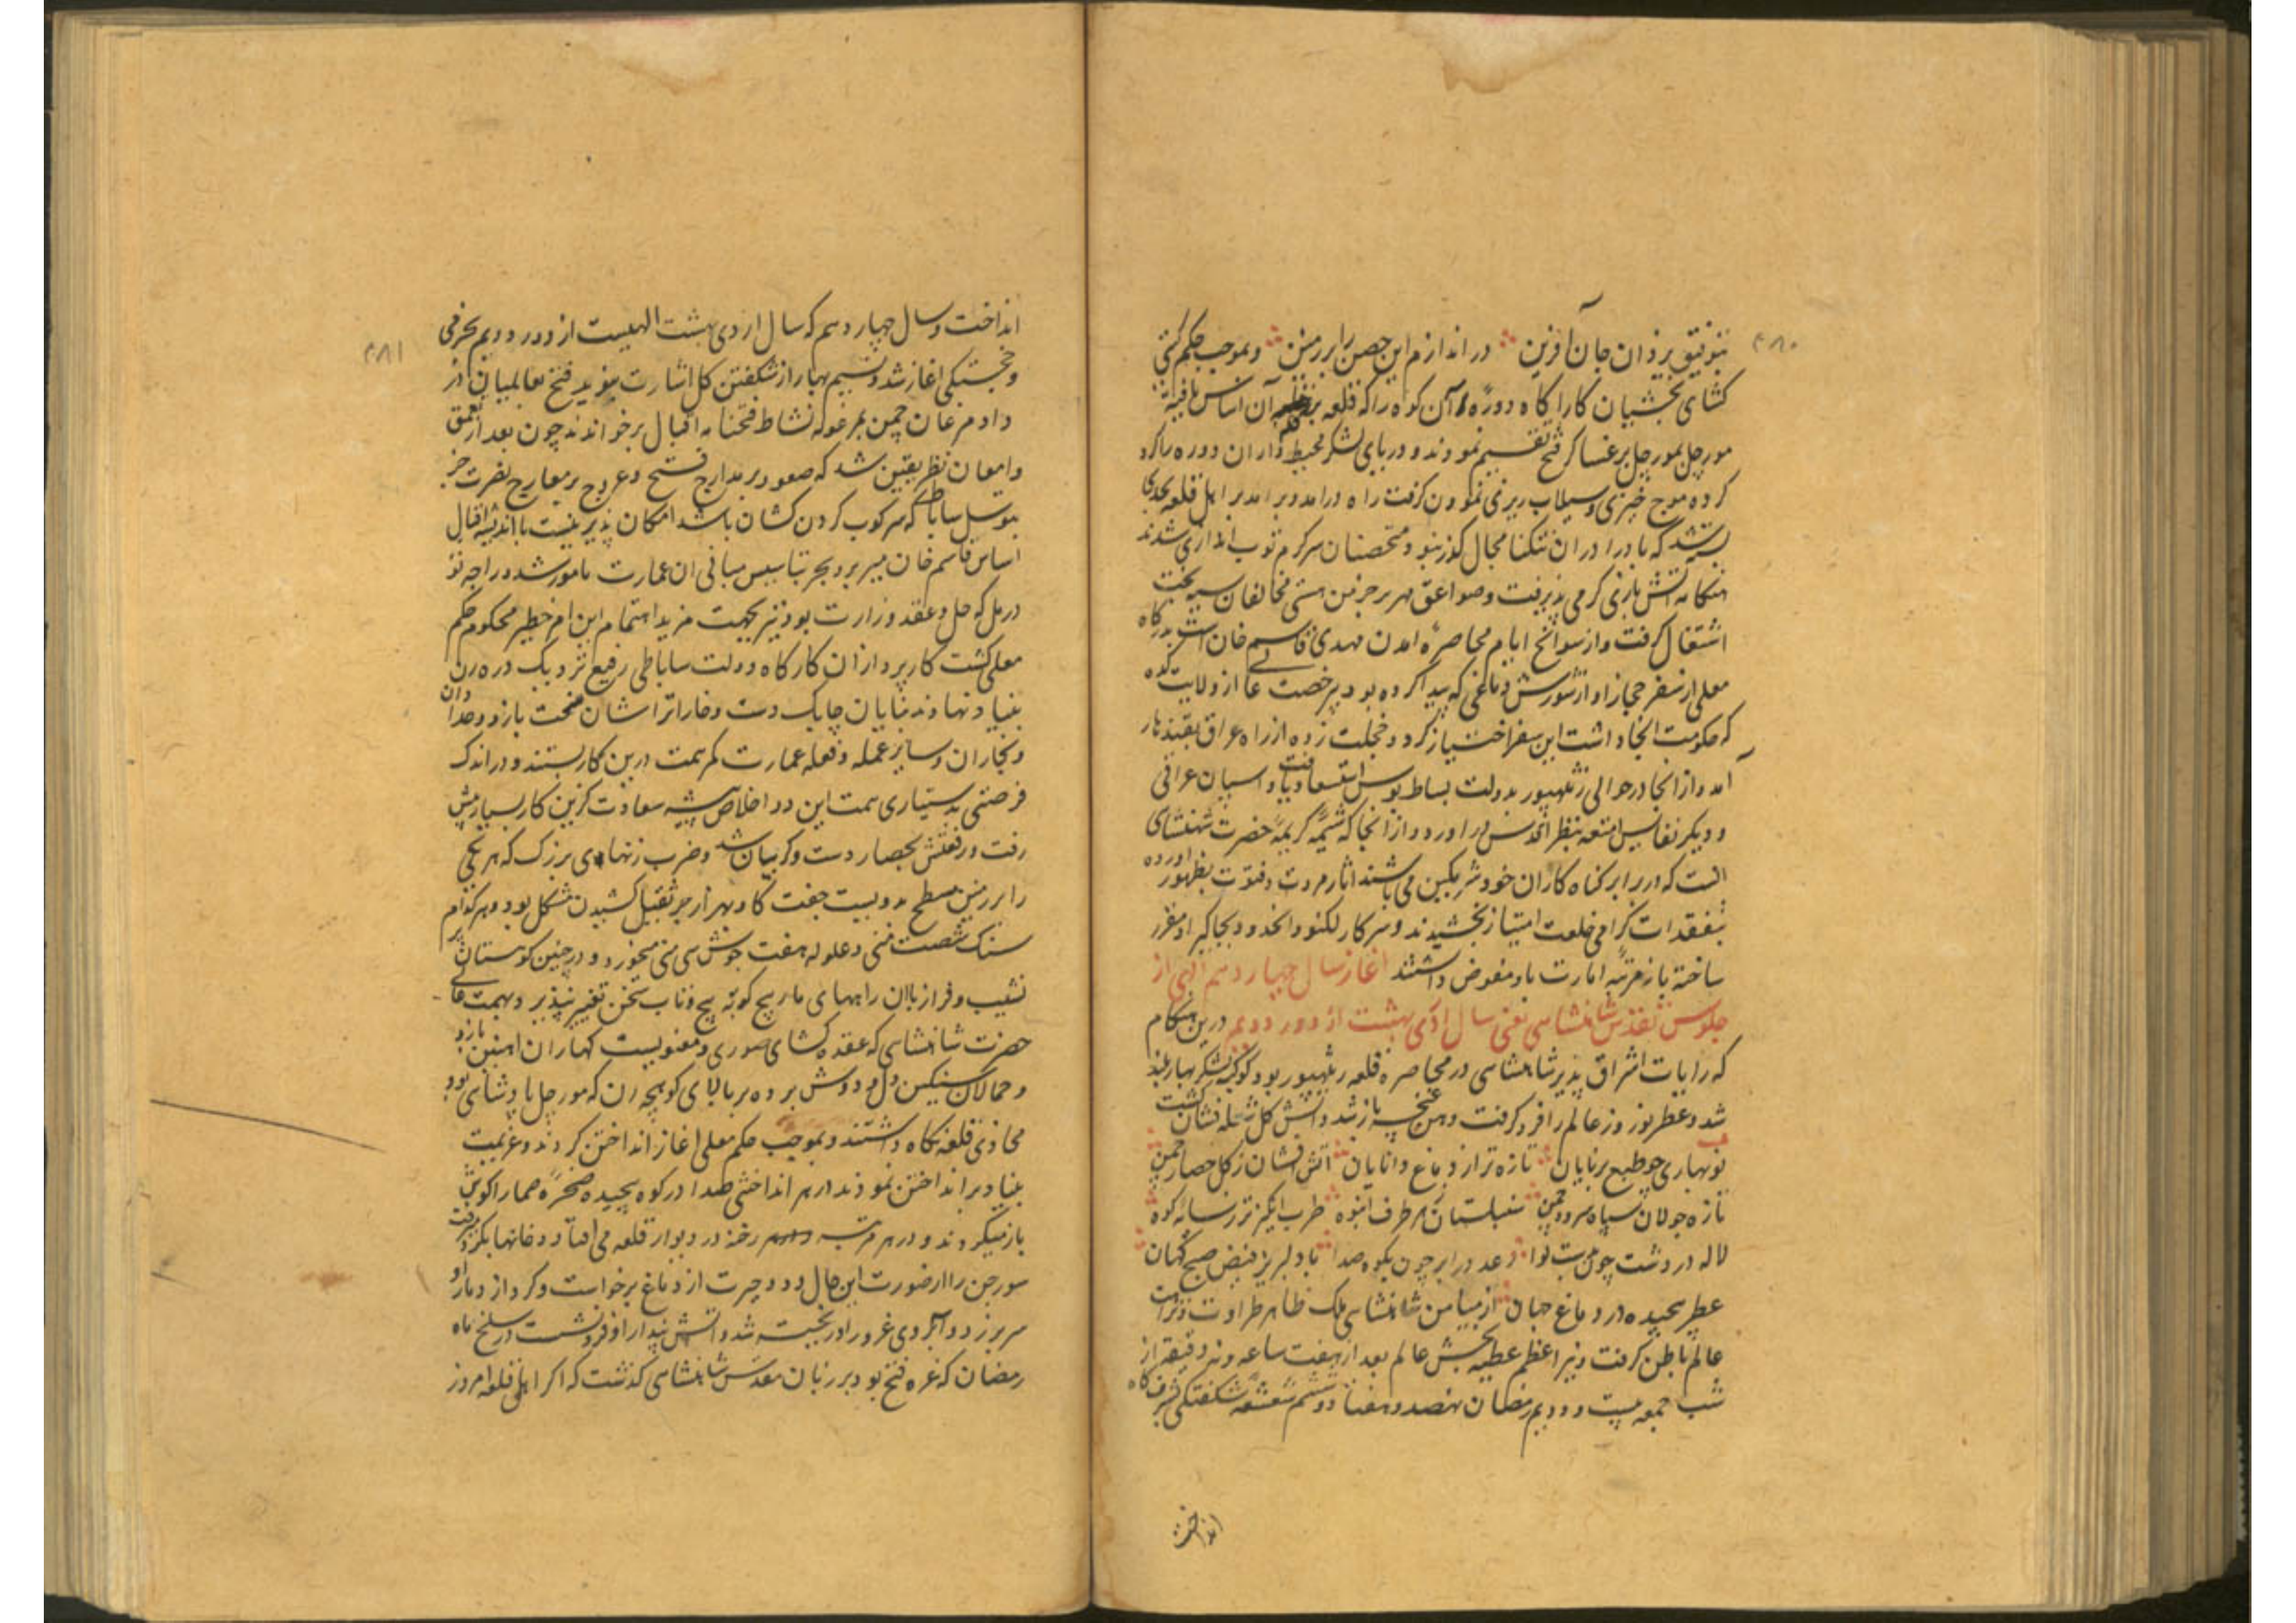 ۴۸۰
بتوفیق یزدان جان آفرین در اندازم این حصن را بر زمین و بموجب حکم گیتی
کشای بخشیان کارآگاه دوره آن کوه را که قلعه بر آن اساس یافته
مورچل بمورچل بر عساکر فتح تقسیم نمودند و دریای لشکر محیط داران دوره را کرد
کرده موج خیزی و سیلاب ریزی نمودن گرفت راه درامد و برامد بر اهل قلعه بحدی
بسته شد که باد را دران تنگنا مجال گذر نبود و متحصنان سرگرم توب اندازی شدند
هنگامه آتش بازی گرمی پذیرفت و صواعق قهر بر خرمن هستی مخالفان سیه بخت
اشتعال گرفت و از سوانح ایام محاصره امدن مهدی قاسم خان است بدرگاه
معلی از سفر حجاز او از شورش دماغی که پیدا کرده بود بیرخصت عالی از ولایت گده
که حکومت انجا داشت این سفر اختیار کرد و خجلت زده از راه عراق بقندهار
آمد و از انجا در حوالی رنتهپور بدولت بساط بوس استسعاد یافت و اسپان عراقی
و دیگر نفایس امتعه بنظر اقدس در اورد و از انجا که شیمهٔ کریمهٔ حضرت شهنشاهی
انست که در برابر گناه گاران خود شرمگین می باشند اثار مروت و فتوت بظهور اورده
بتفقدات گرامی خلعت امتیاز بخشیدند و سرکار لکنو و انحدود بجاگیر او مقرر
ساخته باز مرتبه امارت باو مفوض داشتند اغاز سال چهاردهم الهی از
جلوس مقدس شاهنشاهی یعنی سال اردی بهشت از دور دویم درین هنگام
که رایات اشراق پذیر شاهنشاهی در محاصره قلعه رنتهپور بود کوکبه لشکر بهار بلند
شد و عطر نوروز عالم را فرو گرفت و دهن غنچه باز شد و آتش گل شعله فشان گشت
نوبهاری چو طبع برنایان تازه تر از دماغ دانایان آتش افشان ز گل حصار چمن
تازه جولان سپاه سرو و چمن سنبلستان هر طرف انبوه طرب انگیز تر رساله کوه
لاله در دشت چون بت نوا رعد در ابر چون بکوه صدا باد لبریز فیض صبح گهان
عطر پیچیده در دماغ جهان از میامن شاهنشاهی ملک ظاهر طراوت و نزاهت
عالم باطن گرفت و نیر اعظم عطیه بخش عالم بعد از هفت ساعه و نه دقیقه از
شب جمعه بیست و دویم رمضان نهصد و هفتاد و ششم شعشعه شگفتگی بشرف گاه
انداخت
۴۸۱
انداخت و سال چهاردهم که سال اردی بهشت الهیست از دور دویم بخرمی
و خجستگی اغاز شد و نسیم بهار از شگفتن گل اشارت بنوید فتح بعالمیان در
داد مرغان چمن بمرغوله نشاط فتحنامه اقبال برخواندند چون بعد از تعمق
و امعان نظر یقین شد که صعود بر مدارج فتح و عروج بر معارج نصرت جز
بتوسل ساباط که سرکوب گردن کشان باشد امکان پذیر نیست با اندیشه اقبال
اساس قاسم خان میر بر و بحر بتاسیس مبانی ان عمارت مامور شد و راجه تو
درمل که حل و عقد وزارت بود نیز بجهت مزید اهتمام این امر خطیر محکوم حکم
معلی گشت کارپردازان کارگاه دولت ساباطی رفیع نزدیک دره رن
بنیاد نهادند بنایان چابک دست و خاراتراشان سخت بازو و حدادان
و نجاران و سایر عمله و فعله عمارت کمر همت درین کار بستند و در اندک
فرصتی بدستیاری همت این دو اخلاص پیشه سعادت گزین کار بسیار پیش
رفت و رفعتش بحصار دست و گریبان شد و ضرب زنهای بزرگ که هر یکی
را بر زمین مسطح بدویست جفت گاو بهزار جر ثقیل کشیدن مشکل بود و هر کدام
سنگ شصت منی و غلوله هفت جوش سی منی میخورد و در چنین کوهستان پر
نشیب و فراز باان راههای مار پیچ کوته پیچ و تاب سخن تغیر پذیر و بهمت عالی
حضرت شاهنشاهی که عقده کشای صوری و معنویست کهاران اهنین بازو
و حمالان سنگین دل و دوش برده بر بالای کوهچه رن که مورچل پادشاهی بود
محاذی قلعه نگاه داشتند و بموجب حکم معلی اغاز انداختن کردند و عزیمت
بنیاد بر انداختن نمودند از هر انداختی صدا در کوه پیچیده صخرهٔ صما را گوش
باز میکردند و در هر مرتبه رخنه در دیوار قلعه می افتاد و خانها بگرد میرفت
سورجن را از صورت این حال دود حیرت از دماغ برخواست و گرد از دمار او
سر بر زد و آبروی غرور او ریخته شد و آتش پندار او فرو نشست در سلخ ماه
رمضان که غره فتح بود بر زبان مقدس شاهنشاهی گذشت که اگر اهل قلعه امروز